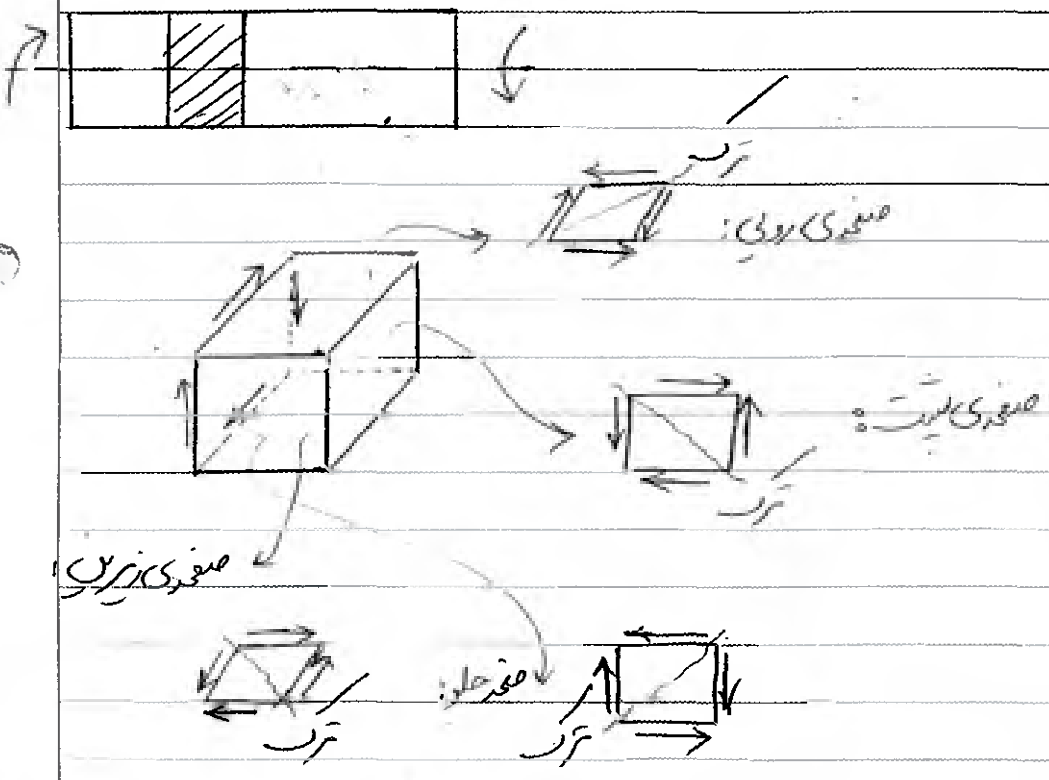 ترک
صفحه‌ی رویی:
صفحه‌ی پشت:
ترک
صفحه‌ی زیرین:
صفحه جلو:
ترک
ترک